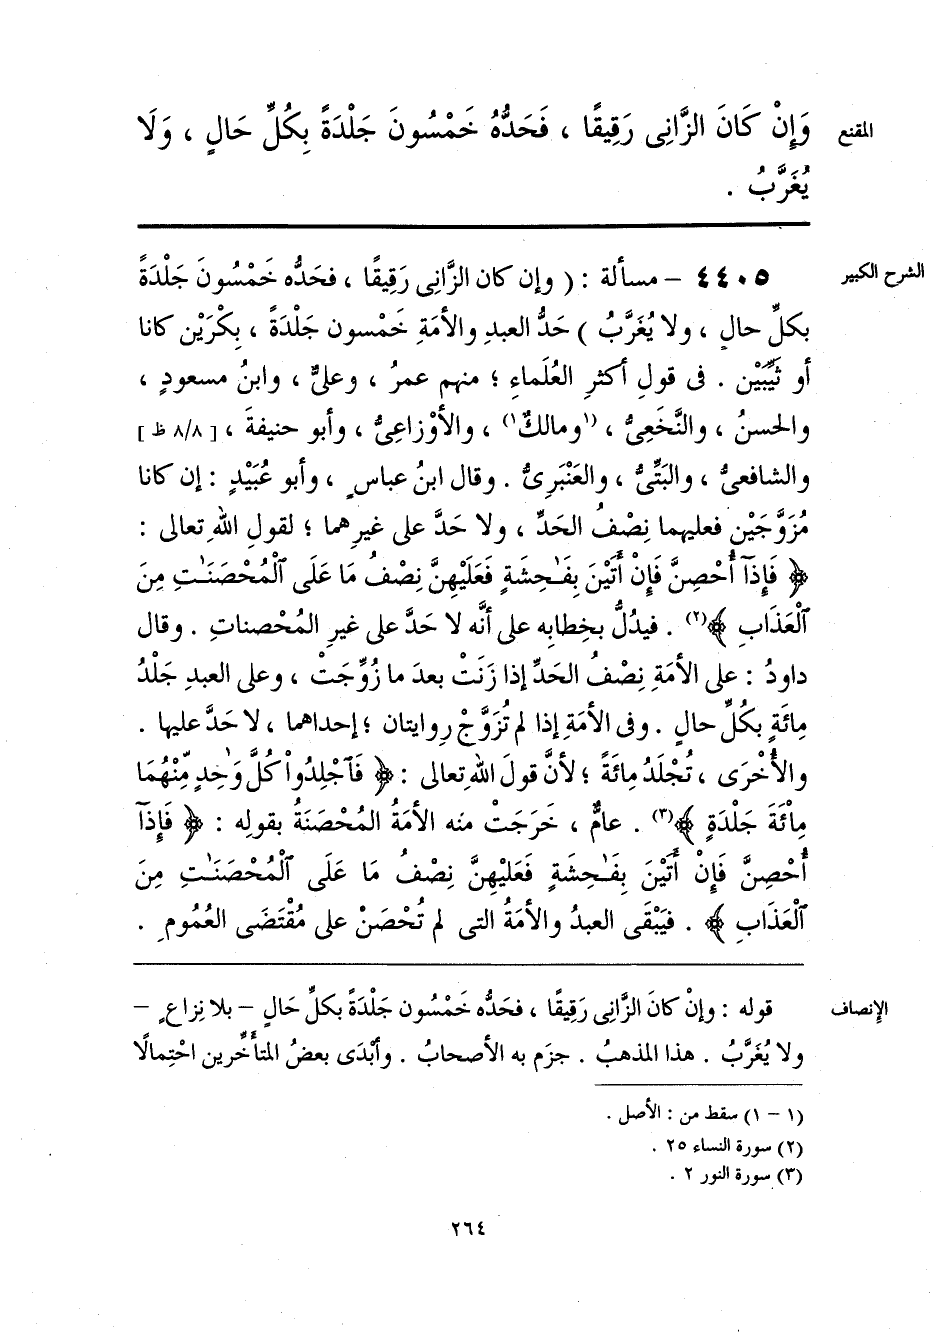 المقنع
وَإِنْ كَانَ الزَّانِى رَقِيقًا ، فَحَدُّهُ خَمْسُونَ جَلْدَةً بِكُلِّ حَالٍ ، وَلَا
يُغَرَّبُ .
الشرح الكبير
٤٤٠٥ – مسألة : ( وإن كان الزَّانِى رَقِيقًا ، فحَدُّه خَمْسُونَ جَلْدَةً
بكلِّ حالٍ ، ولا يُغَرَّبُ ) حَدُّ العبدِ والأمَةِ خَمْسون جَلْدَةً ، بِكْرَيْن كانا
أو ثَيِّبَيْن . فى قولِ أكثرِ العُلَماءِ ؛ منهم عمرُ ، وعلىٌّ ، وابنُ مسعودٍ ،
والحسنُ ، والنَّخَعِىُّ ، (١ومالكٌ١) ، والأوْزاعِىُّ ، وأبو حنيفةَ ، [ ٨/٨ ظ ]
والشافعىُّ ، والبَتِّىُّ ، والعَنْبَرِىُّ . وقال ابنُ عباسٍ ، وأبو عُبَيْدٍ : إن كانا
مُزَوَّجَيْن فعليهما نِصْفُ الحَدِّ ، ولا حَدَّ على غيرِهما ؛ لقولِ اللهِ تعالى :
﴿ فَإِذَآ أُحْصِنَّ فَإِنْ أَتَيْنَ بِفَـٰحِشَةٍ فَعَلَيْهِنَّ نِصْفُ مَا عَلَى ٱلْمُحْصَنَـٰتِ مِنَ
ٱلْعَذَابِ ﴾(٢) . فيدُلُّ بخِطابِه على أنَّه لا حَدَّ على غيرِ المُحْصناتِ . وقال
داودُ : على الأمَةِ نِصْفُ الحَدِّ إذا زَنَتْ بعدَ ما زُوِّجَتْ ، وعلى العبدِ جَلْدُ
مِائَةٍ بكُلِّ حالٍ . وفى الأمَةِ إذا لم تُزَوَّجْ رِوايتان ؛ إحداهما ، لا حَدَّ عليها .
والأُخْرَى ، تُجْلَدُ مِائَةً ؛ لأنَّ قولَ اللهِ تعالى : ﴿ فَٱجْلِدُوا۟ كُلَّ وَٰحِدٍ مِّنْهُمَا
مِا۟ئَةَ جَلْدَةٍ ﴾(٣) . عامٌّ ، خَرَجَتْ منه الأمَةُ المُحْصَنَةُ بقولِه : ﴿ فَإِذَآ
أُحْصِنَّ فَإِنْ أَتَيْنَ بِفَـٰحِشَةٍ فَعَلَيْهِنَّ نِصْفُ مَا عَلَى ٱلْمُحْصَنَـٰتِ مِنَ
ٱلْعَذَابِ ﴾ . فيَبْقَى العبدُ والأمَةُ التى لم تُحْصَنْ على مُقْتَضَى العُمُومِ .
الإنصاف
قوله : وإنْ كانَ الزَّانِى رَقِيقًا ، فحَدُّه خَمْسُون جَلْدَةً بكلِّ حَالٍ – بلا نِزاعٍ –
ولا يُغَرَّبُ . هذا المذهبُ . جزَم به الأصحابُ . وأبْدَى بعضُ المتأخِّرين احْتِمالًا
(١ – ١) سقط من : الأصل .
(٢) سورة النساء ٢٥ .
(٣) سورة النور ٢ .
٢٦٤